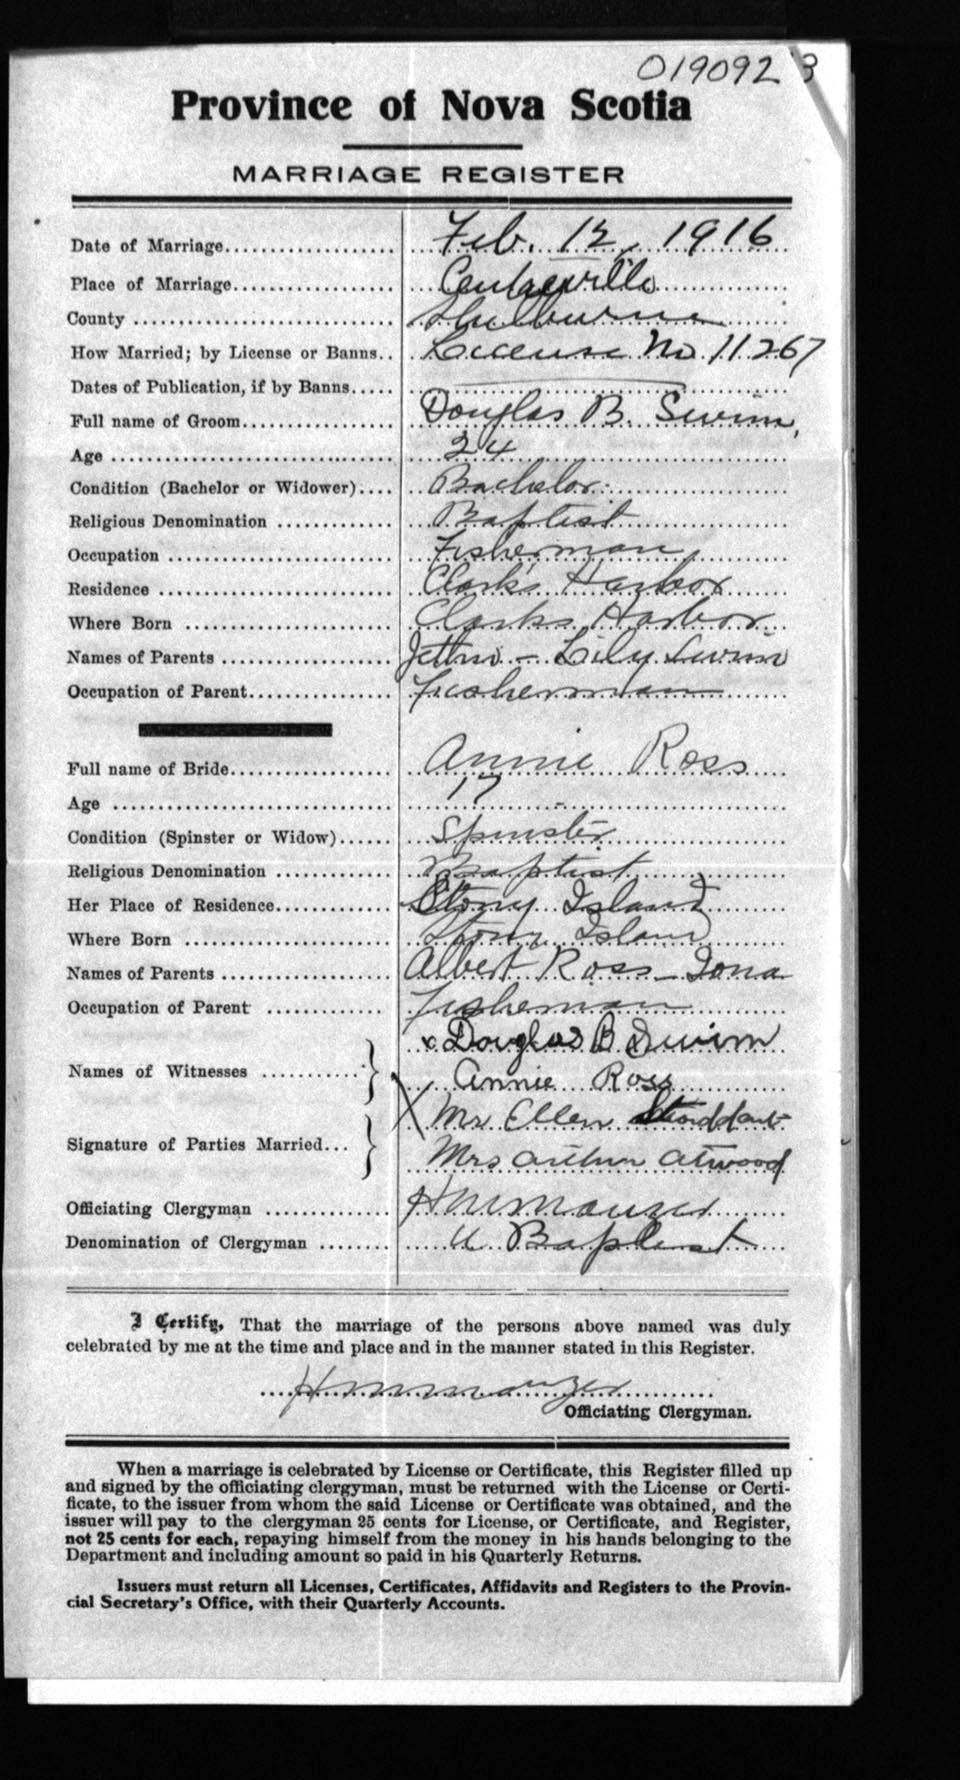 019092
Province of Nova Scotia
MARRIAGE REGISTER
Date of Marriage.................... Feb. 12, 1916
Place of Marriage................... Centreville
County ............................. Shelburne
How Married; by License or Banns.. License No. 11267
Dates of Publication, if by Banns.....
Full name of Groom.................. Douglas B. Swim,
Age ................................ 24
Condition (Bachelor or Widower).... Bachelor
Religious Denomination ............. Baptist
Occupation ......................... Fisherman
Residence .......................... Clark's Harbor
Where Born ......................... Clarks Harbor
Names of Parents ................... Jethro - Lily Swim
Occupation of Parent................ Fisherman
Full name of Bride.................. Annie Ross
Age ................................ 17
Condition (Spinster or Widow)...... Spinster
Religious Denomination ............. Baptist
Her Place of Residence.............. Stony Island
Where Born ......................... Stony Island
Names of Parents ................... Albert Ross - Iona
Occupation of Parent ............... Fisherman
x Douglas B Swim
Names of Witnesses ............
Annie Ross
X Mrs Ellen
Signature of Parties Married...
Mrs Arthur Atwood
Officiating Clergyman ..............
Denomination of Clergyman ........ U Baptist
I Certify, That the marriage of the persons above named was duly
celebrated by me at the time and place and in the manner stated in this Register.
Officiating Clergyman.
When a marriage is celebrated by License or Certificate, this Register filled up
and signed by the officiating clergyman, must be returned with the License or Certi-
ficate, to the issuer from whom the said License or Certificate was obtained, and the
issuer will pay to the clergyman 25 cents for License, or Certificate, and Register,
not 25 cents for each, repaying himself from the money in his hands belonging to the
Department and including amount so paid in his Quarterly Returns.
Issuers must return all Licenses, Certificates, Affidavits and Registers to the Provin-
cial Secretary's Office, with their Quarterly Accounts.